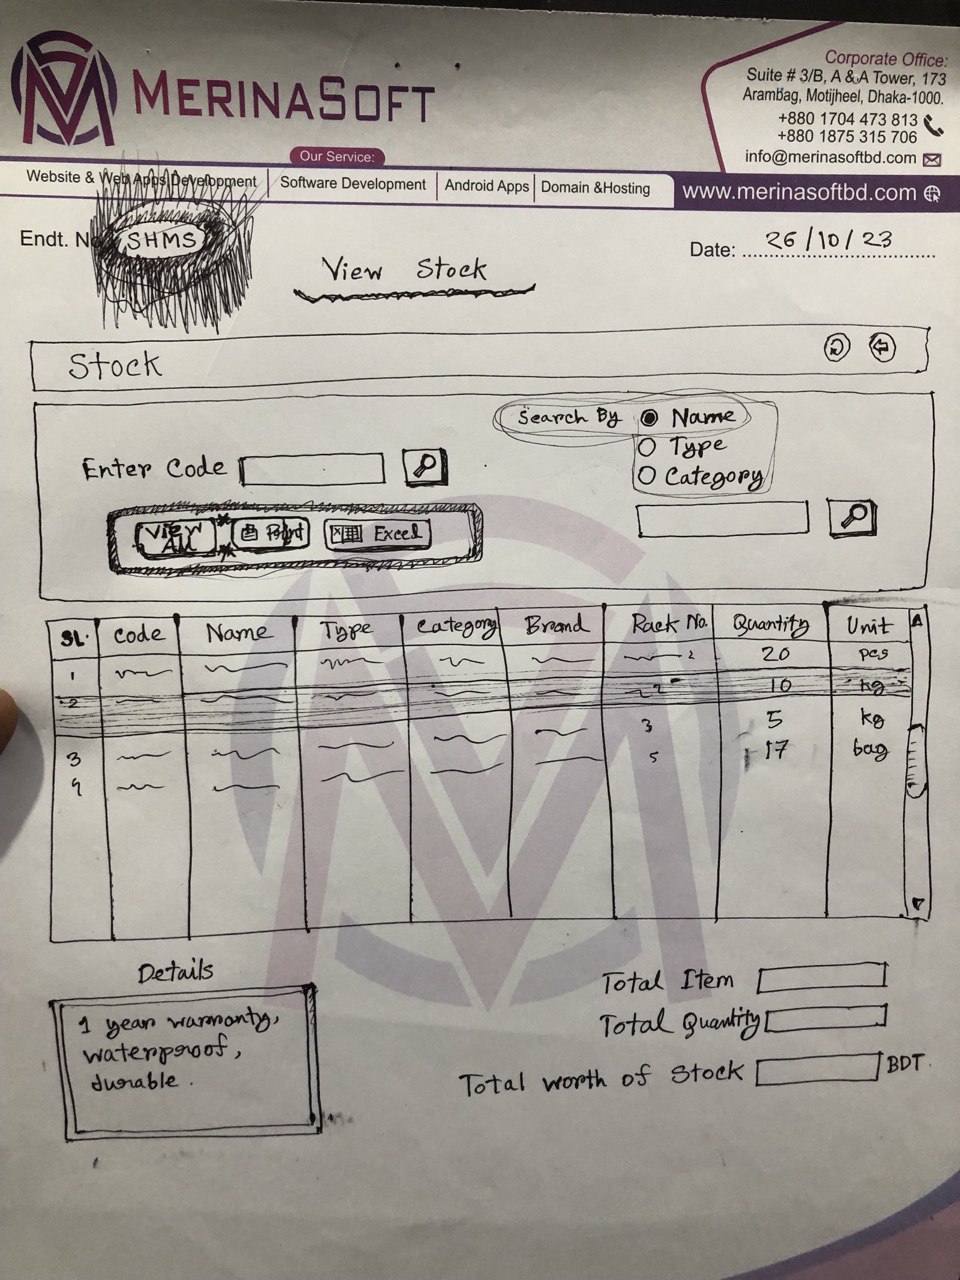 MERINASOFT
Corporate Office:
Suite # 3/B, A & A Tower, 173
Arambag, Motijheel, Dhaka-1000.
+880 1704 473 813
+880 1875 315 706
info@merinasoftbd.com
Our Service:
Website & Web Apps Development
Software Development
Android Apps
Domain &Hosting
www.merinasoftbd.com
Endt. N
SHMS
Date: 26/10/23
View Stock
Stock
Search By Name
Type
Category
Enter Code
View All
Print
Excel
SL. Code Name Type Category Brand Rack No. Quantity Unit
1 2 20 pcs
2 2 10 kg
3 5 kg
3 5 17 bag
4
Details
1 year warranty,
waterproof,
durable.
Total Item
Total Quantity
Total worth of Stock BDT.